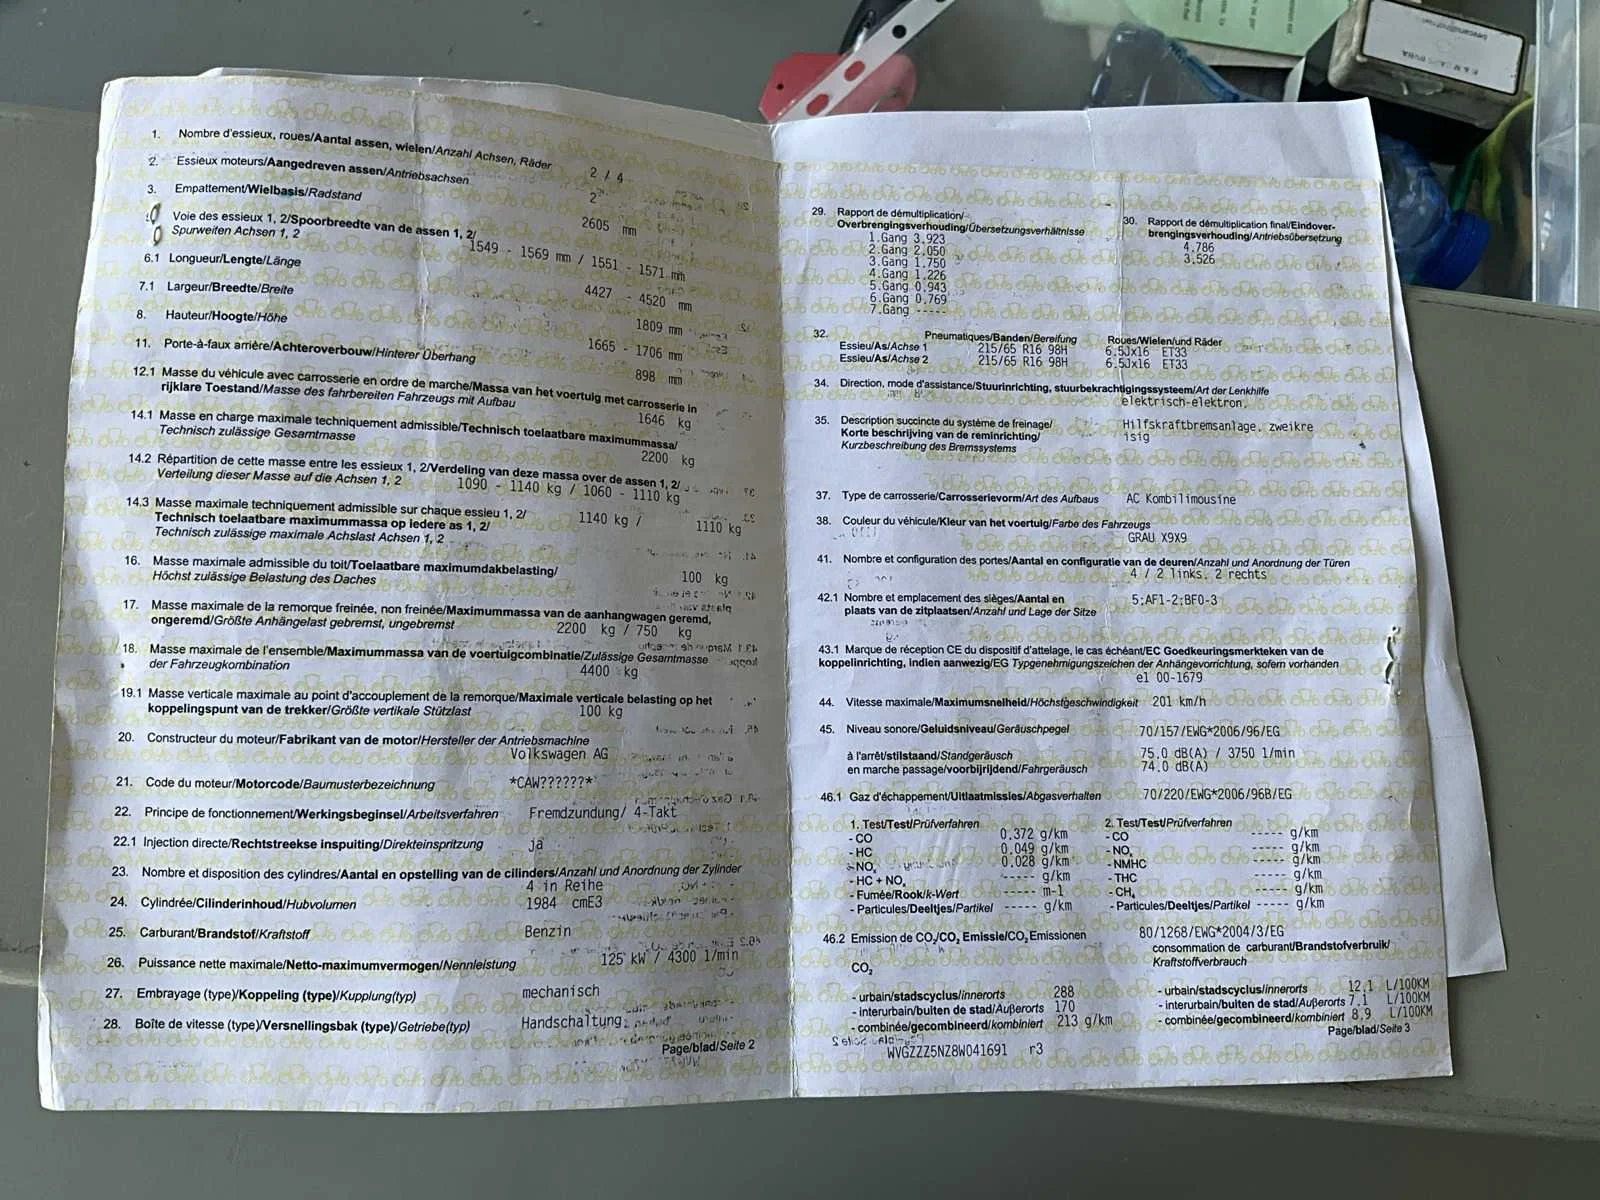 1. Nombre d'essieux, roues/Aantal assen, wielen/Anzahl Achsen, Räder 2 / 4
2. Essieux moteurs/Aangedreven assen/Antriebsachsen 2
3. Empattement/Wielbasis/Radstand 2605 mm
Voie des essieux 1, 2/Spoorbreedte van de assen 1, 2/
Spurweiten Achsen 1, 2 1549 - 1569 mm / 1551 - 1571 mm
6.1 Longueur/Lengte/Länge 4427 - 4520 mm
7.1 Largeur/Breedte/Breite 1809 mm
8. Hauteur/Hoogte/Höhe 1665 - 1706 mm
11. Porte-à-faux arrière/Achteroverbouw/Hinterer Überhang 898 mm
12.1 Masse du véhicule avec carrosserie en ordre de marche/Massa van het voertuig met carrosserie in
rijklare Toestand/Masse des fahrbereiten Fahrzeugs mit Aufbau 1646 kg
14.1 Masse en charge maximale techniquement admissible/Technisch toelaatbare maximummassa/
Technisch zulässige Gesamtmasse 2200 kg
14.2 Répartition de cette masse entre les essieux 1, 2/Verdeling van deze massa over de assen 1, 2/
Verteilung dieser Masse auf die Achsen 1, 2 1090 - 1140 kg / 1060 - 1110 kg
14.3 Masse maximale techniquement admissible sur chaque essieu 1, 2/
Technisch toelaatbare maximummassa op iedere as 1, 2/ 1140 kg / 1110 kg
Technisch zulässige maximale Achslast Achsen 1, 2
16. Masse maximale admissible du toit/Toelaatbare maximumdakbelasting/
Höchst zulässige Belastung des Daches 100 kg
17. Masse maximale de la remorque freinée, non freinée/Maximummassa van de aanhangwagen geremd,
ongeremd/Größte Anhängelast gebremst, ungebremst 2200 kg / 750 kg
18. Masse maximale de l'ensemble/Maximummassa van de voertuigcombinatie/Zulässige Gesamtmasse
der Fahrzeugkombination 4400 kg
19.1 Masse verticale maximale au point d'accouplement de la remorque/Maximale verticale belasting op het
koppelingspunt van de trekker/Größte vertikale Stützlast 100 kg
20. Constructeur du moteur/Fabrikant van de motor/Hersteller der Antriebsmachine
Volkswagen AG
21. Code du moteur/Motorcode/Baumusterbezeichnung *CAW??????*
22. Principe de fonctionnement/Werkingsbeginsel/Arbeitsverfahren Fremdzundung/ 4-Takt
22.1 Injection directe/Rechtstreekse inspuiting/Direkteinspritzung ja
23. Nombre et disposition des cylindres/Aantal en opstelling van de cilinders/Anzahl und Anordnung der Zylinder
4 in Reihe
24. Cylindrée/Cilinderinhoud/Hubvolumen 1984 cmE3
25. Carburant/Brandstof/Kraftstoff Benzin
26. Puissance nette maximale/Netto-maximumvermogen/Nennleistung 125 kW / 4300 1/min
27. Embrayage (type)/Koppeling (type)/Kupplung(typ) mechanisch
28. Boîte de vitesse (type)/Versnellingsbak (type)/Getriebe(typ) Handschaltung
Page/blad/Seite 2
29. Rapport de démultiplication/
Overbrengingsverhouding/Übersetzungsverhältnisse
1.Gang 3.923
2.Gang 2.050
3.Gang 1.750
4.Gang 1.226
5.Gang 0.943
6.Gang 0.769
7.Gang -----
30. Rapport de démultiplication final/Eindover-
brengingsverhouding/Antriebsübersetzung
4.786
3.526
32. Pneumatiques/Banden/Bereifung Roues/Wielen/und Räder
Essieu/As/Achse 1 215/65 R16 98H 6.5Jx16 ET33
Essieu/As/Achse 2 215/65 R16 98H 6.5Jx16 ET33
34. Direction, mode d'assistance/Stuurinrichting, stuurbekrachtigingssysteem/Art der Lenkhilfe
elektrisch-elektron.
35. Description succincte du système de freinage/ Hilfskraftbremsanlage. zweikre
Korte beschrijving van de reminrichting/ isig
Kurzbeschreibung des Bremssystems
37. Type de carrosserie/Carrosserievorm/Art des Aufbaus AC Kombilimousine
38. Couleur du véhicule/Kleur van het voertuig/Farbe des Fahrzeugs
GRAU X9X9
41. Nombre et configuration des portes/Aantal en configuratie van de deuren/Anzahl und Anordnung der Türen
4 / 2 links. 2 rechts
42.1 Nombre et emplacement des sièges/Aantal en 5;AF1-2;BF0-3
plaats van de zitplaatsen/Anzahl und Lage der Sitze
43.1 Marque de réception CE du dispositif d'attelage, le cas échéant/EC Goedkeuringsmerkteken van de
koppelinrichting, indien aanwezig/EG Typgenehmigungszeichen der Anhängevorrichtung, sofern vorhanden
e1 00-1679
44. Vitesse maximale/Maximumsnelheid/Höchstgeschwindigkeit 201 km/h
45. Niveau sonore/Geluidsniveau/Geräuschpegel 70/157/EWG*2006/96/EG
à l'arrêt/stilstaand/Standgeräusch 75.0 dB(A) / 3750 1/min
en marche passage/voorbijrijdend/Fahrgeräusch 74.0 dB(A)
46.1 Gaz d'échappement/Uitlaatmissies/Abgasverhalten 70/220/EWG*2006/96B/EG
1. Test/Test/Prüfverfahren
- CO 0.372 g/km
- HC 0.049 g/km
- NOx 0.028 g/km
- HC + NOx ----- g/km
- Fumée/Rook/k-Wert ----- m-1
- Particules/Deeltjes/Partikel ----- g/km
2. Test/Test/Prüfverfahren
- CO ----- g/km
- NOx ----- g/km
- NMHC ----- g/km
- THC ----- g/km
- CH4 ----- g/km
- Particules/Deeltjes/Partikel ----- g/km
46.2 Emission de CO2/CO2 Emissie/CO2 Emissionen 80/1268/EWG*2004/3/EG
CO2
- urbain/stadscyclus/innerorts 288
- interurbain/buiten de stad/Außerorts 170
- combinée/gecombineerd/kombiniert 213 g/km
consommation de carburant/Brandstofverbruik/
Kraftstoffverbrauch
- urbain/stadscyclus/innerorts 12,1 L/100KM
- interurbain/buiten de stad/Außerorts 7,1 L/100KM
- combinée/gecombineerd/kombiniert 8,9 L/100KM
Page/blad/Seite 3
WVGZZZ5NZ8W041691 r3